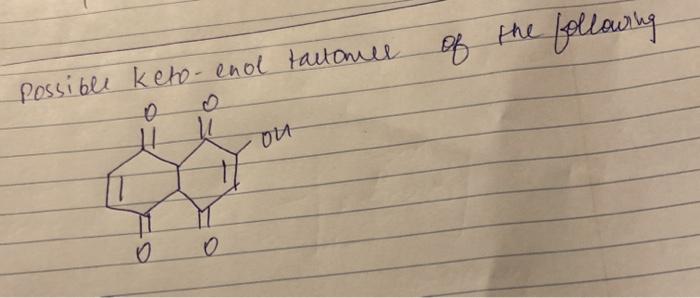 Possible keto-enol tautomer of the following
O O
OH
O O